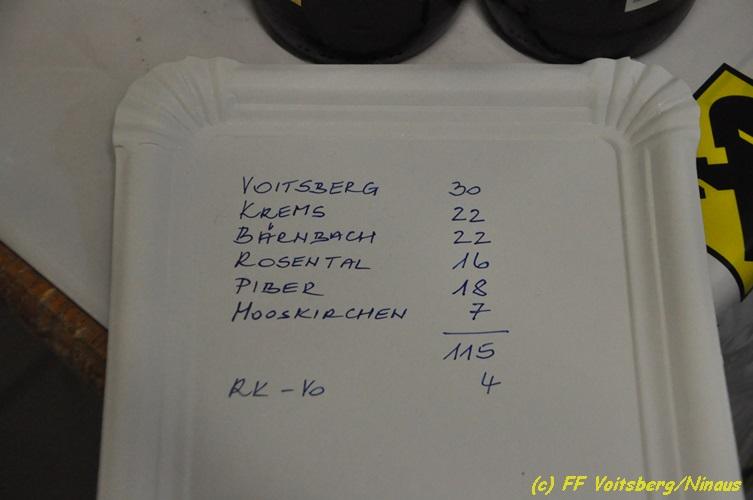 VOITSBERG 30
KREMS 22
BÄRNBACH 22
ROSENTAL 16
PIBER 18
MOOSKIRCHEN 7
115
RK - VO 4
(c) FF Voitsberg/Ninaus